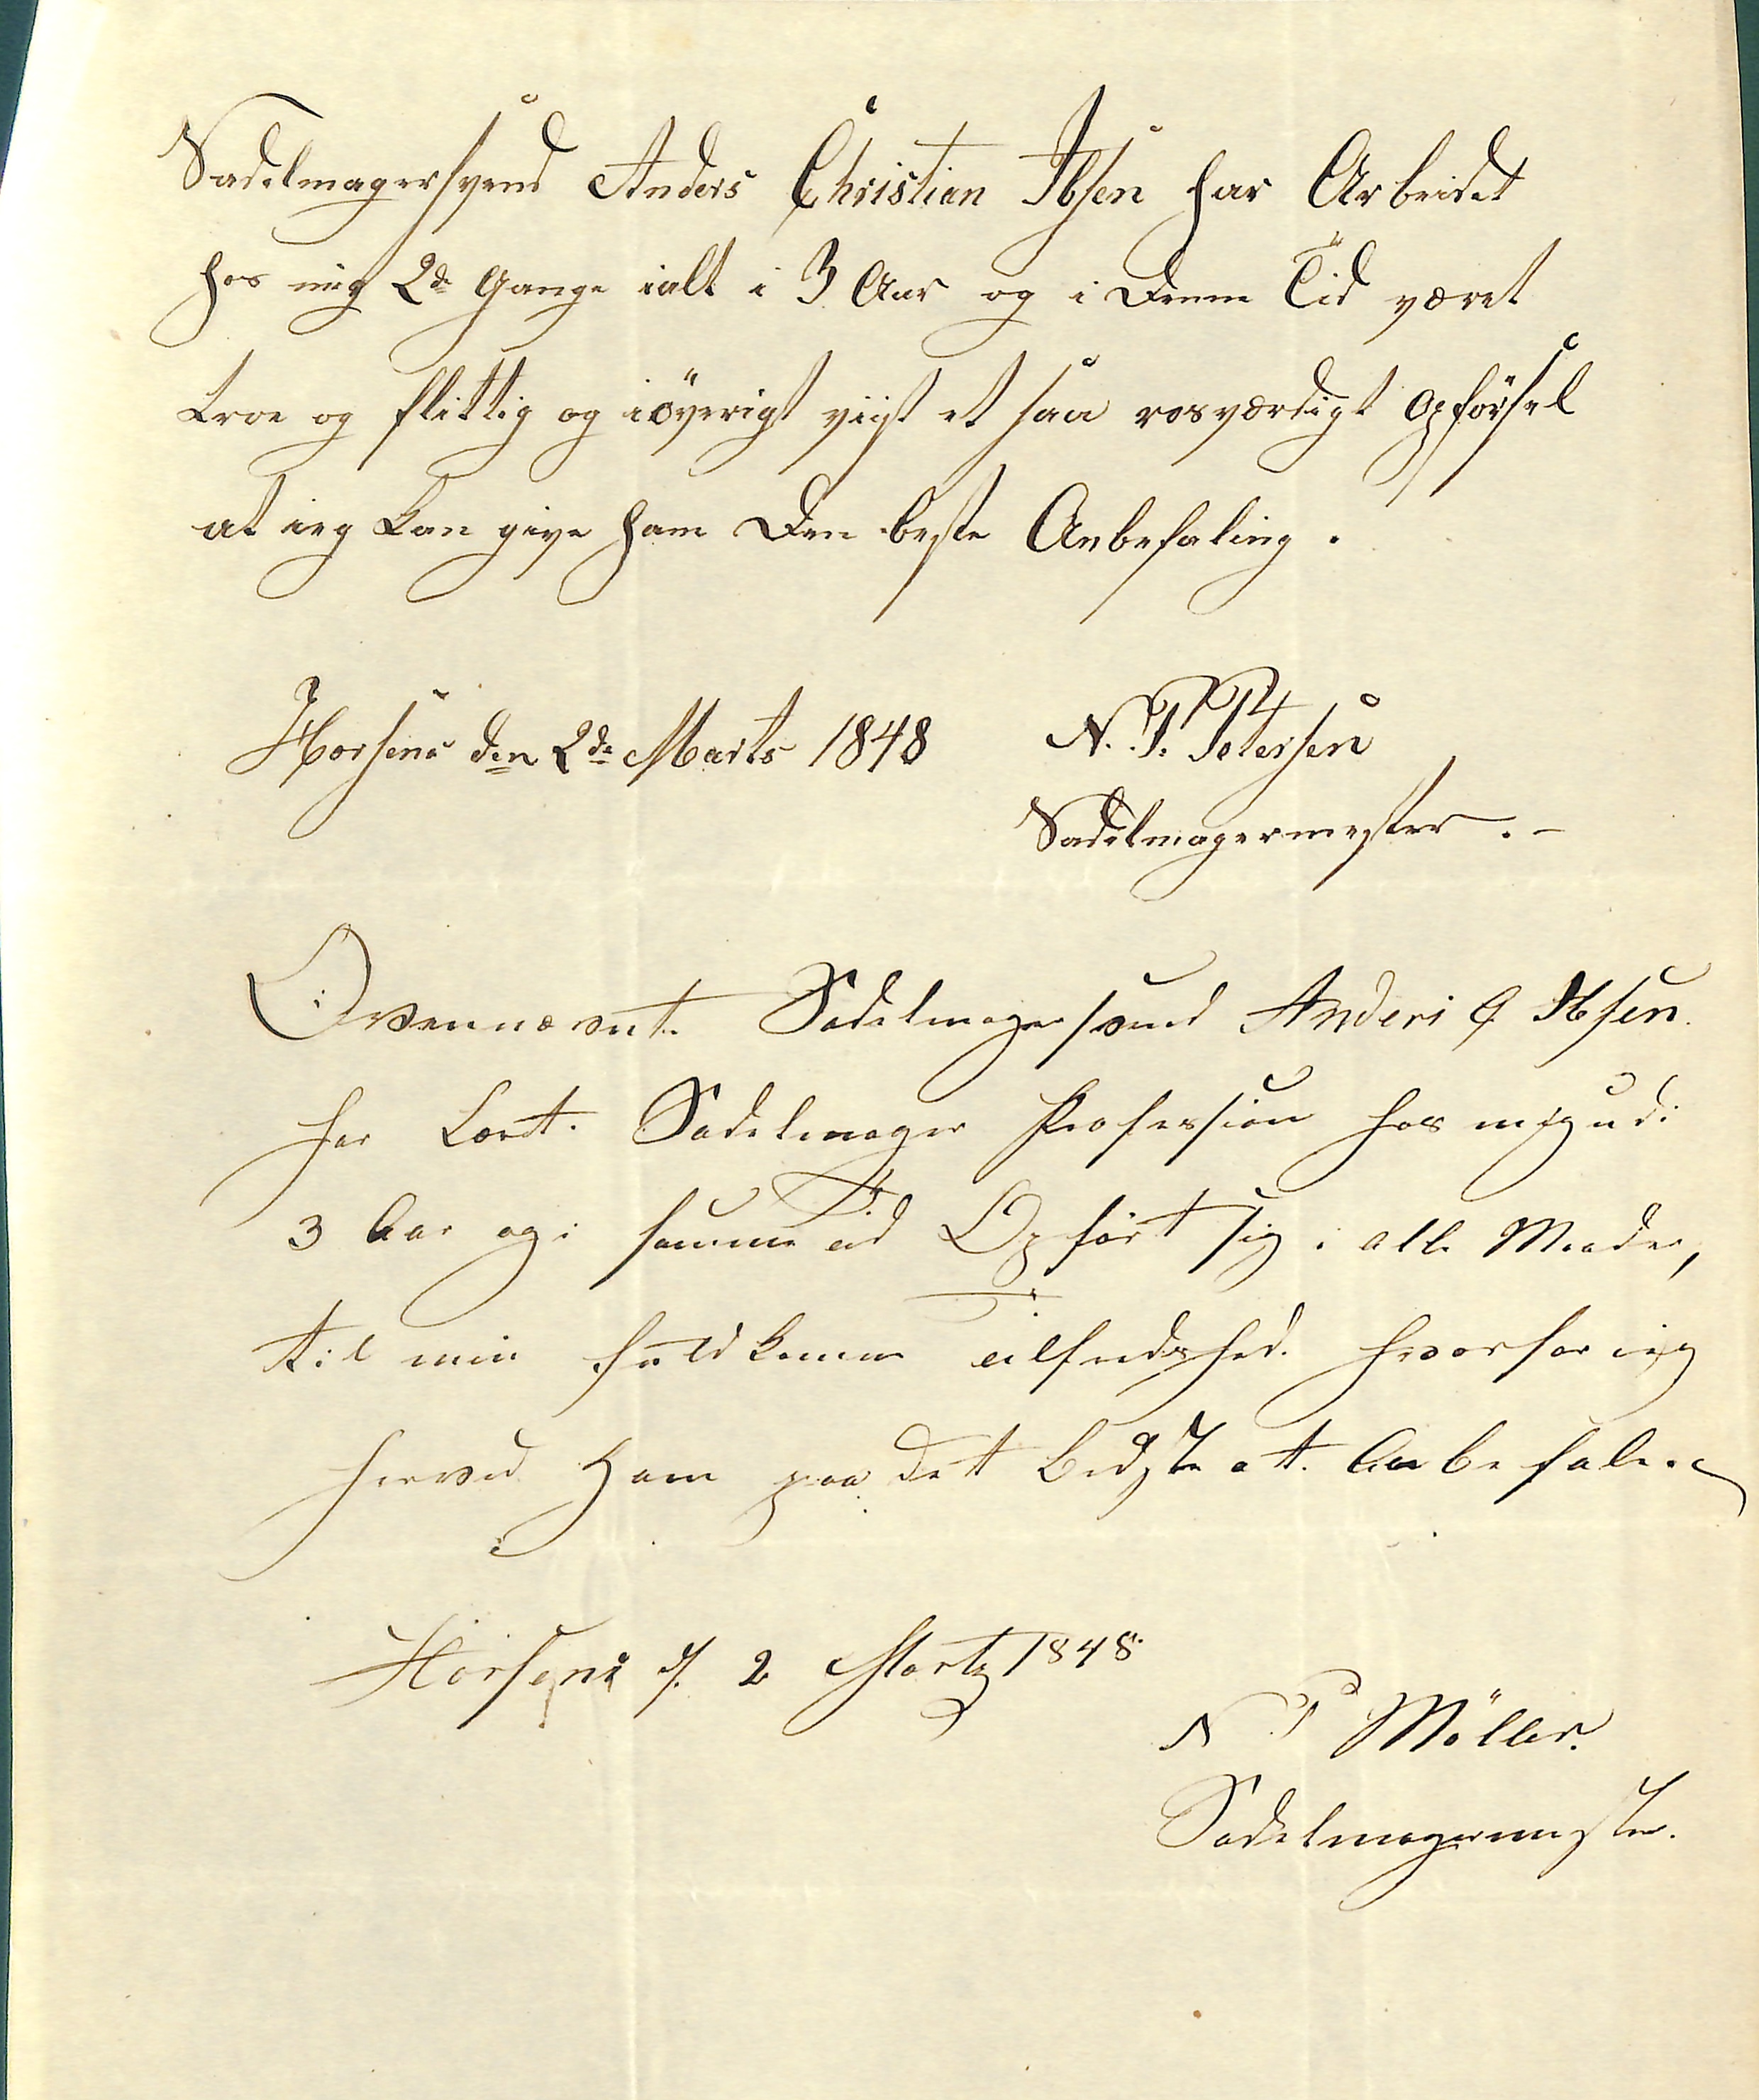 Sadelmagersvend Anders Christian Ibsen har Arbeidet
hos mig 2de Gange ialt i 3 Aar og i Denne Tid været
troe og flittig og iöverigt viist et saa rosværdigt Opförsel
at ieg kan give ham Den beste Anbefaling.
Horsens den 2de Marts 1848
N. P. Petersen
Sadelmagermester. –
Ovennævnt. Sadelmagersvend Anders C Ibsen
har Lært. Sadelmager Profession hos mig udi
3 Aar og i samme Tid Opfört sig i alle Maader,
til min fuldkomne Tilfredshed. hvorfor ieg
herved Ham paa det Bedste at. Anbefale.
Horsens d. 2 Martz 1848
N P Möller.
Sadelmagermester.